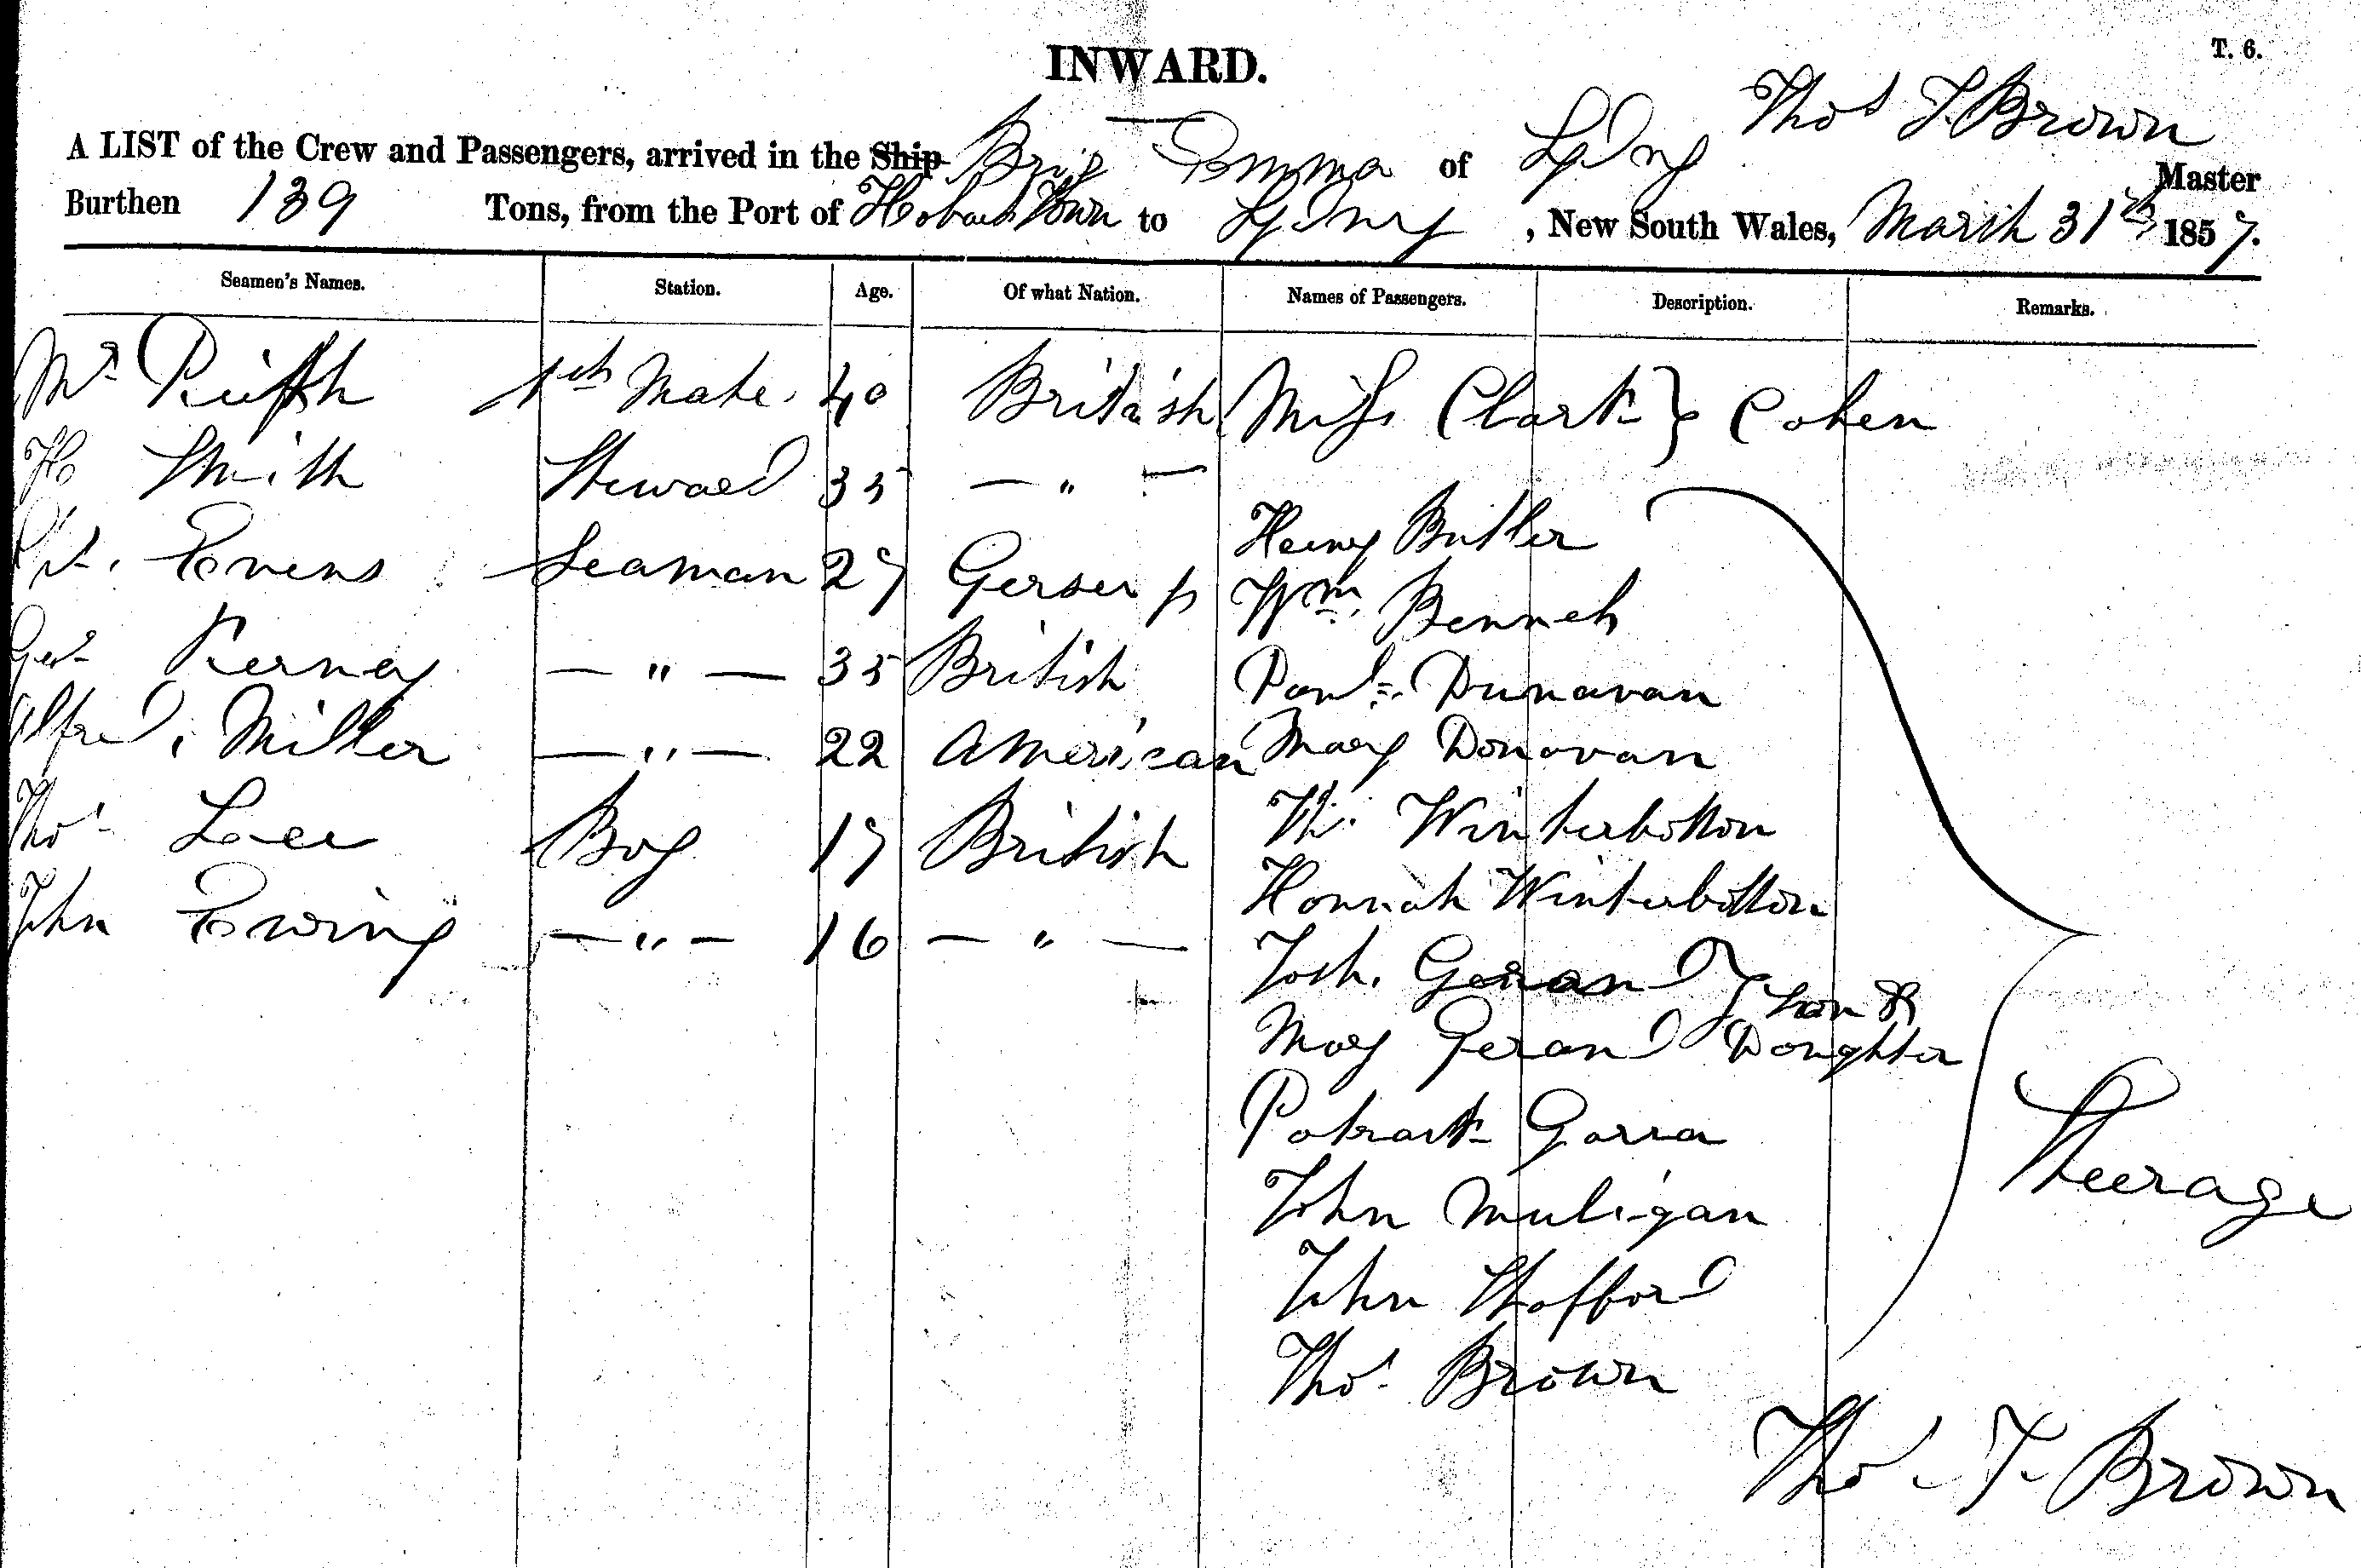 T. 6.
INWARD.
Thos T. Brown
A LIST of the Crew and Passengers, arrived in the Ship Brig Emma of Sydny Master
Burthen 139 Tons, from the Port of Hobart Town to Sydny, New South Wales, March 31th 1857.
Seamen's Names. Station. Age. Of what Nation. Names of Passengers. Description. Remarks.
Mr 1st Mate. 40 British Miss Clark } Caben
H Smith Steward 35 — " —
Evens Seaman 27 Henry Butler
Geo Kerney — " — 35 British Wm. Bennet
Alfred Miller — " — 22 American Dunavan
Thos Lee Boy 17 British Mary Donovan
John Ewing — " — 16 — " — Wm. Winterbotton
Hannah Winterbotton
Josh. Gerand } son &
Mary Gerand Daughter
Patrack Garra
John Muligan
John Stafford
Thos Brown
Steerage
Thos T. Brown